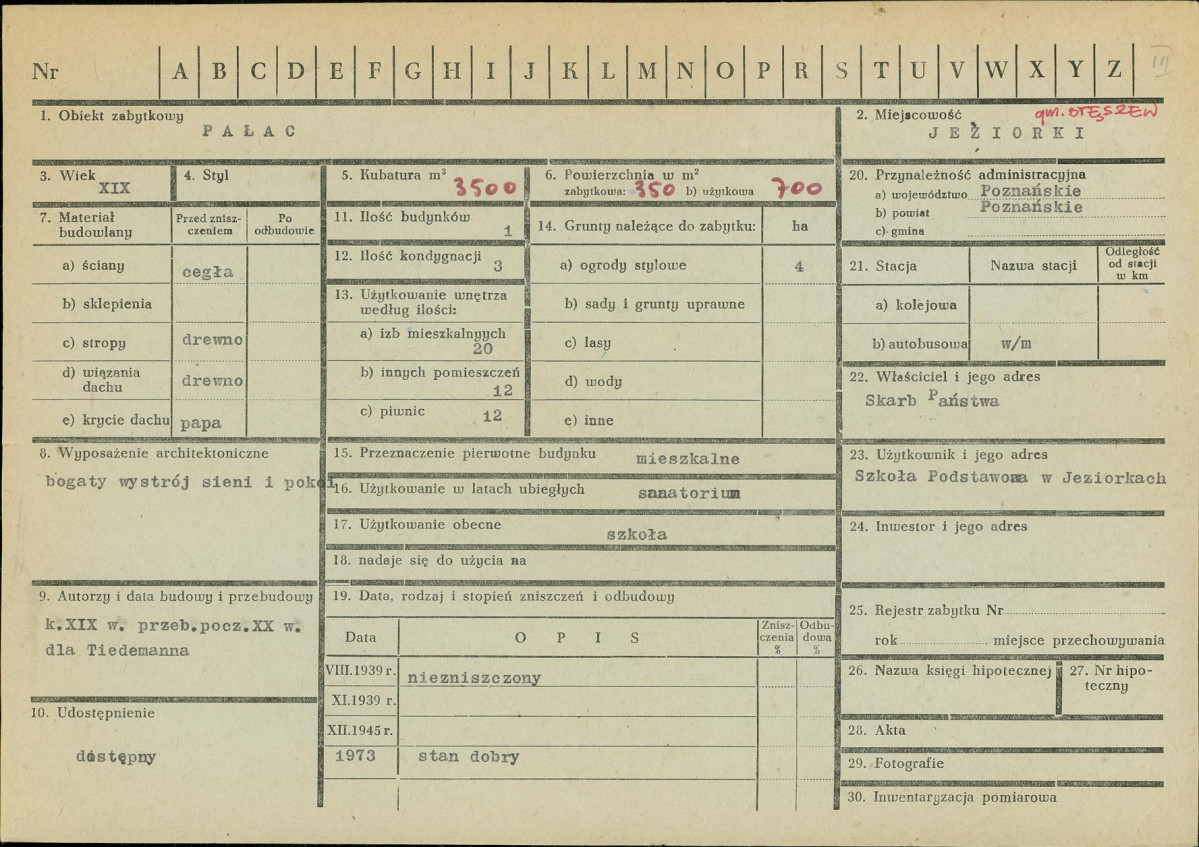 Nr A B C D E F G H I J K L M N O P R S T U V W X Y Z III
1. Obiekt zabytkowy
PAŁAC
2. Miejscowość gm. STĘSZEW
JEZIORKI
3. Wiek
XIX
4. Styl
5. Kubatura m³
3500
6. Powierzchnia w m²
zabytkowa: 350 b) użytkowa 700
20. Przynależność administracyjna
a) województwo Poznańskie
b) powiat Poznańskie
c) gmina
7. Materiał budowlany
Przed zniszczeniem
Po odbudowie
a) ściany cegła
b) sklepienia
c) stropy drewno
d) wiązania dachu drewno
e) krycie dachu papa
11. Ilość budynków
1
12. Ilość kondygnacji
3
13. Użytkowanie wnętrza
według ilości:
a) izb mieszkalnyych
20
b) innych pomieszczeń
12
c) piwnic 12
14. Grunty należące do zabytku: ha
a) ogrody stylowe 4
b) sady i grunty uprawne
c) lasy
d) wody
e) inne
21. Stacja Nazwa stacji
Odległość
od stacji
w km
a) kolejowa
b) autobusowa w/m
22. Właściciel i jego adres
Skarb Państwa
8. Wyposażenie architektoniczne
bogaty wystrój sieni i pokoi
15. Przeznaczenie pierwotne budynku mieszkalne
16. Użytkowanie w latach ubiegłych sanatorium
17. Użytkowanie obecne
szkoła
18. nadaje się do użycia na
23. Użytkownik i jego adres
Szkoła Podstawowa w Jeziorkach
24. Inwestor i jego adres
9. Autorzy i data budowy i przebudowy
k.XIX w. przeb.pocz.XX w.
dla Tiedemanna
10. Udostępnienie
dostępny
19. Data, rodzaj i stopień zniszczeń i odbudowy
Data OPIS
Zniszczenia
%
Odbudowa
%
VIII.1939 r. niezniszczony
XI.1939 r.
XII.1945 r.
1973 stan dobry
25. Rejestr zabytku Nr
rok miejsce przechowywania
26. Nazwa księgi hipotecznej
27. Nr hipoteczny
28. Akta
29. Fotografie
30. Inwentaryzacja pomiarowa